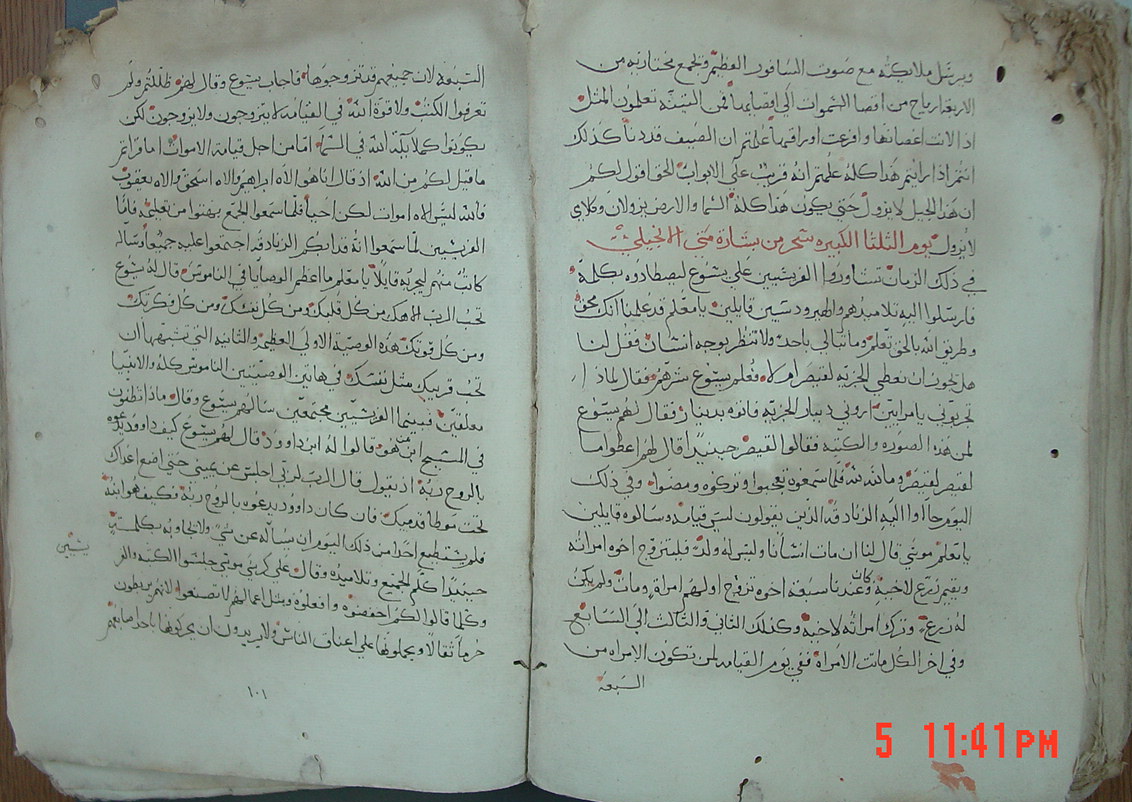 ويرسل ملايكته مع صوت السافور العظيم ويجمع مختاريه من
الاربعة ارياح من اقصا السموات الي اقصايها فمن التينه تعلمون المثل
اذا لانت اغصانها وافرعت اوراقها علمتم ان الصيف قد دنا كذلك
انتم اذا رايتم هذا كله علمتم انه قريب علي الابواب الحق اقول لكم
ان هذا الجيل لا يزول حتي يكون هذا كله السما والارض يزولان وكلامي
لا يزول يوم الثلثا الكبيره سحر من بشارة متي الانجيلي
في ذلك الزمان تشاوروا الفريسيين علي يسوع ليصطادوه بكلمة
فارسلوا اليه تلاميذهم والهيرودسيين قايلين يا معلم قد علمنا انك محق
وطريق الله بالحق تعلم وما تبالي باحد ولا تنظر بوجه انسان فقل لنا
هل يجوز ان نعطي الجزيه لقيصر ام لا فعلم يسوع شرهم فقال لماذا
تجربوني يا مرايين اروني دينار الجزيه فاتوه بدينار فقال لهم يسوع
لمن هذا الصوره والكتبه فقالوا لقيصر حينيذا قال لهم اعطوا ما
لقيصر لقيصر وما لله لله فلما سمعوه تعجبوا وتركوه ومضوا وفي ذلك
اليوم جااوا اليه الزنادقه الذين يقولون ليس قيامه وسالوه قايلين
يا معلم موسي قال لنا ان مات انسانا وليس له ولد فليتزوج اخوه امراته
ويقيم زرع لاخيه وكان عندنا سبعة اخوه تزوج اولهم امراة ومات ولم يكن
له زرع وترك امراته لاخيه وكذلك الثاني والثالث الي السابع
وفي اخر الكل ماتت الامراة ففي يوم القيامه لمن تكون الامراه من
السبعة
السبعة لان جميعهم قد تزوجوها فاجاب يسوع وقال لهم ظللتم ولم
تعرفوا الكتب ولا قوة الله في القيامه لا يتزوجون ولا يزوجون لكن
يكونوا كملايكة الله في السما اما من اجل قيامة الاموات اما قراتم
ما قيل لكم من الله اذ قال انا هو الاه ابراهيم والاه اسحق والاه يعقوب
فالله ليس الاه اموات لكن احيا فلما سمعوا الجمع بهتوا من تعليمه فاما
الفريسيين لما سمعوا انه قد ابكم الزنادقه اجتمعوا عليه جميعا وساله
كاتب منهم ليجربه قايلا يا معلم ما اعظم الوصايا في الناموس قال له يسوع
تحب الرب الاهك من كل قلبك ومن كل نفسك ومن كل فكرتك
ومن كل قوتك هذه الوصية الاولي العظمي والثانيه التي تشبهها ان
تحب قريبك مثل نفسك في هاتين الوصيتين الناموس كله والانبيا
معلقين فبينما الفريسيين مجتمعين سالهم يسوع وقال ماذا تظنون
في المسيح ابن من هو قالوا له ابن داوود قال لهم يسوع كيف داوود يدعوه
بالروح ربه اذ يقول قال الرب لربي اجلس عن يميني حتي اضع اعداك
تحت موطا قدميك فان كان داوود يدعوه بالروح ربه فكيف هو ابنه
فلم يستطيع احدا من ذلك اليوم ان يساله عن شي ولا يجاوبه بكلمة
حينيذا كلم الجميع وتلاميذه وقال علي كرسي موسي جلسوا الكتبه والفر
يسيين
وكلما قالوا لكم احفضوه وافعلوه ومثل اعمالهم لا تصنعوا لانهم يربطون
حزما ثقالا ويحملوها علي اعناق الناس ولا يريدون ان يحركوها باحد اصابعهم
١٠١
5 11:41 PM